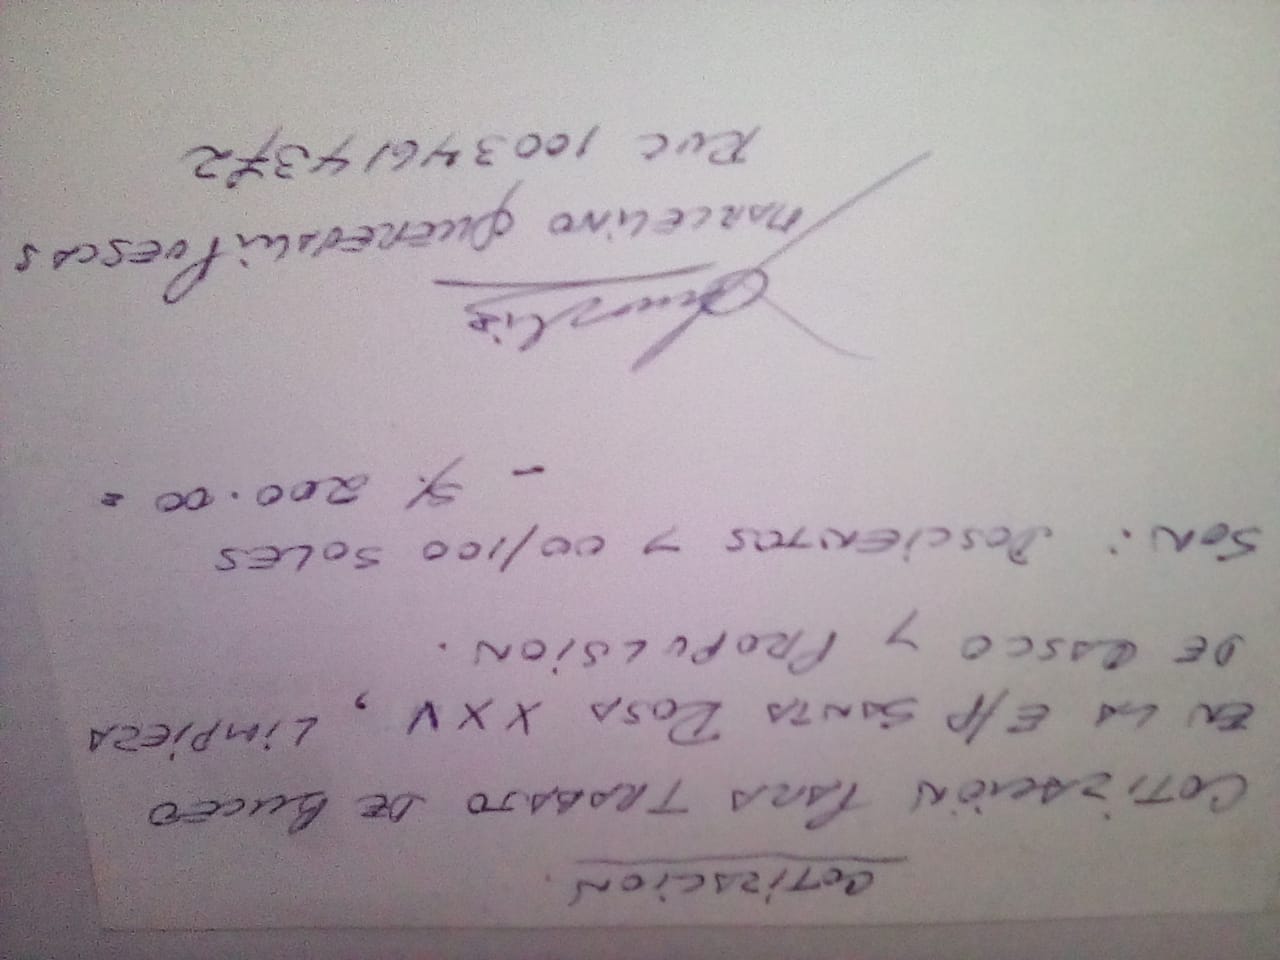 COTIZACION.
COTIZACIÓN PARA TRABAJO DE BUCEO
EN LA E/P SANTA ROSA XXV, LIMPIEZA
DE CASCO Y PROPULSION.
SON: DOSCIENTOS Y 00/100 SOLES
- S/. 200.00 =
MARCELINO
RUC 10034614372